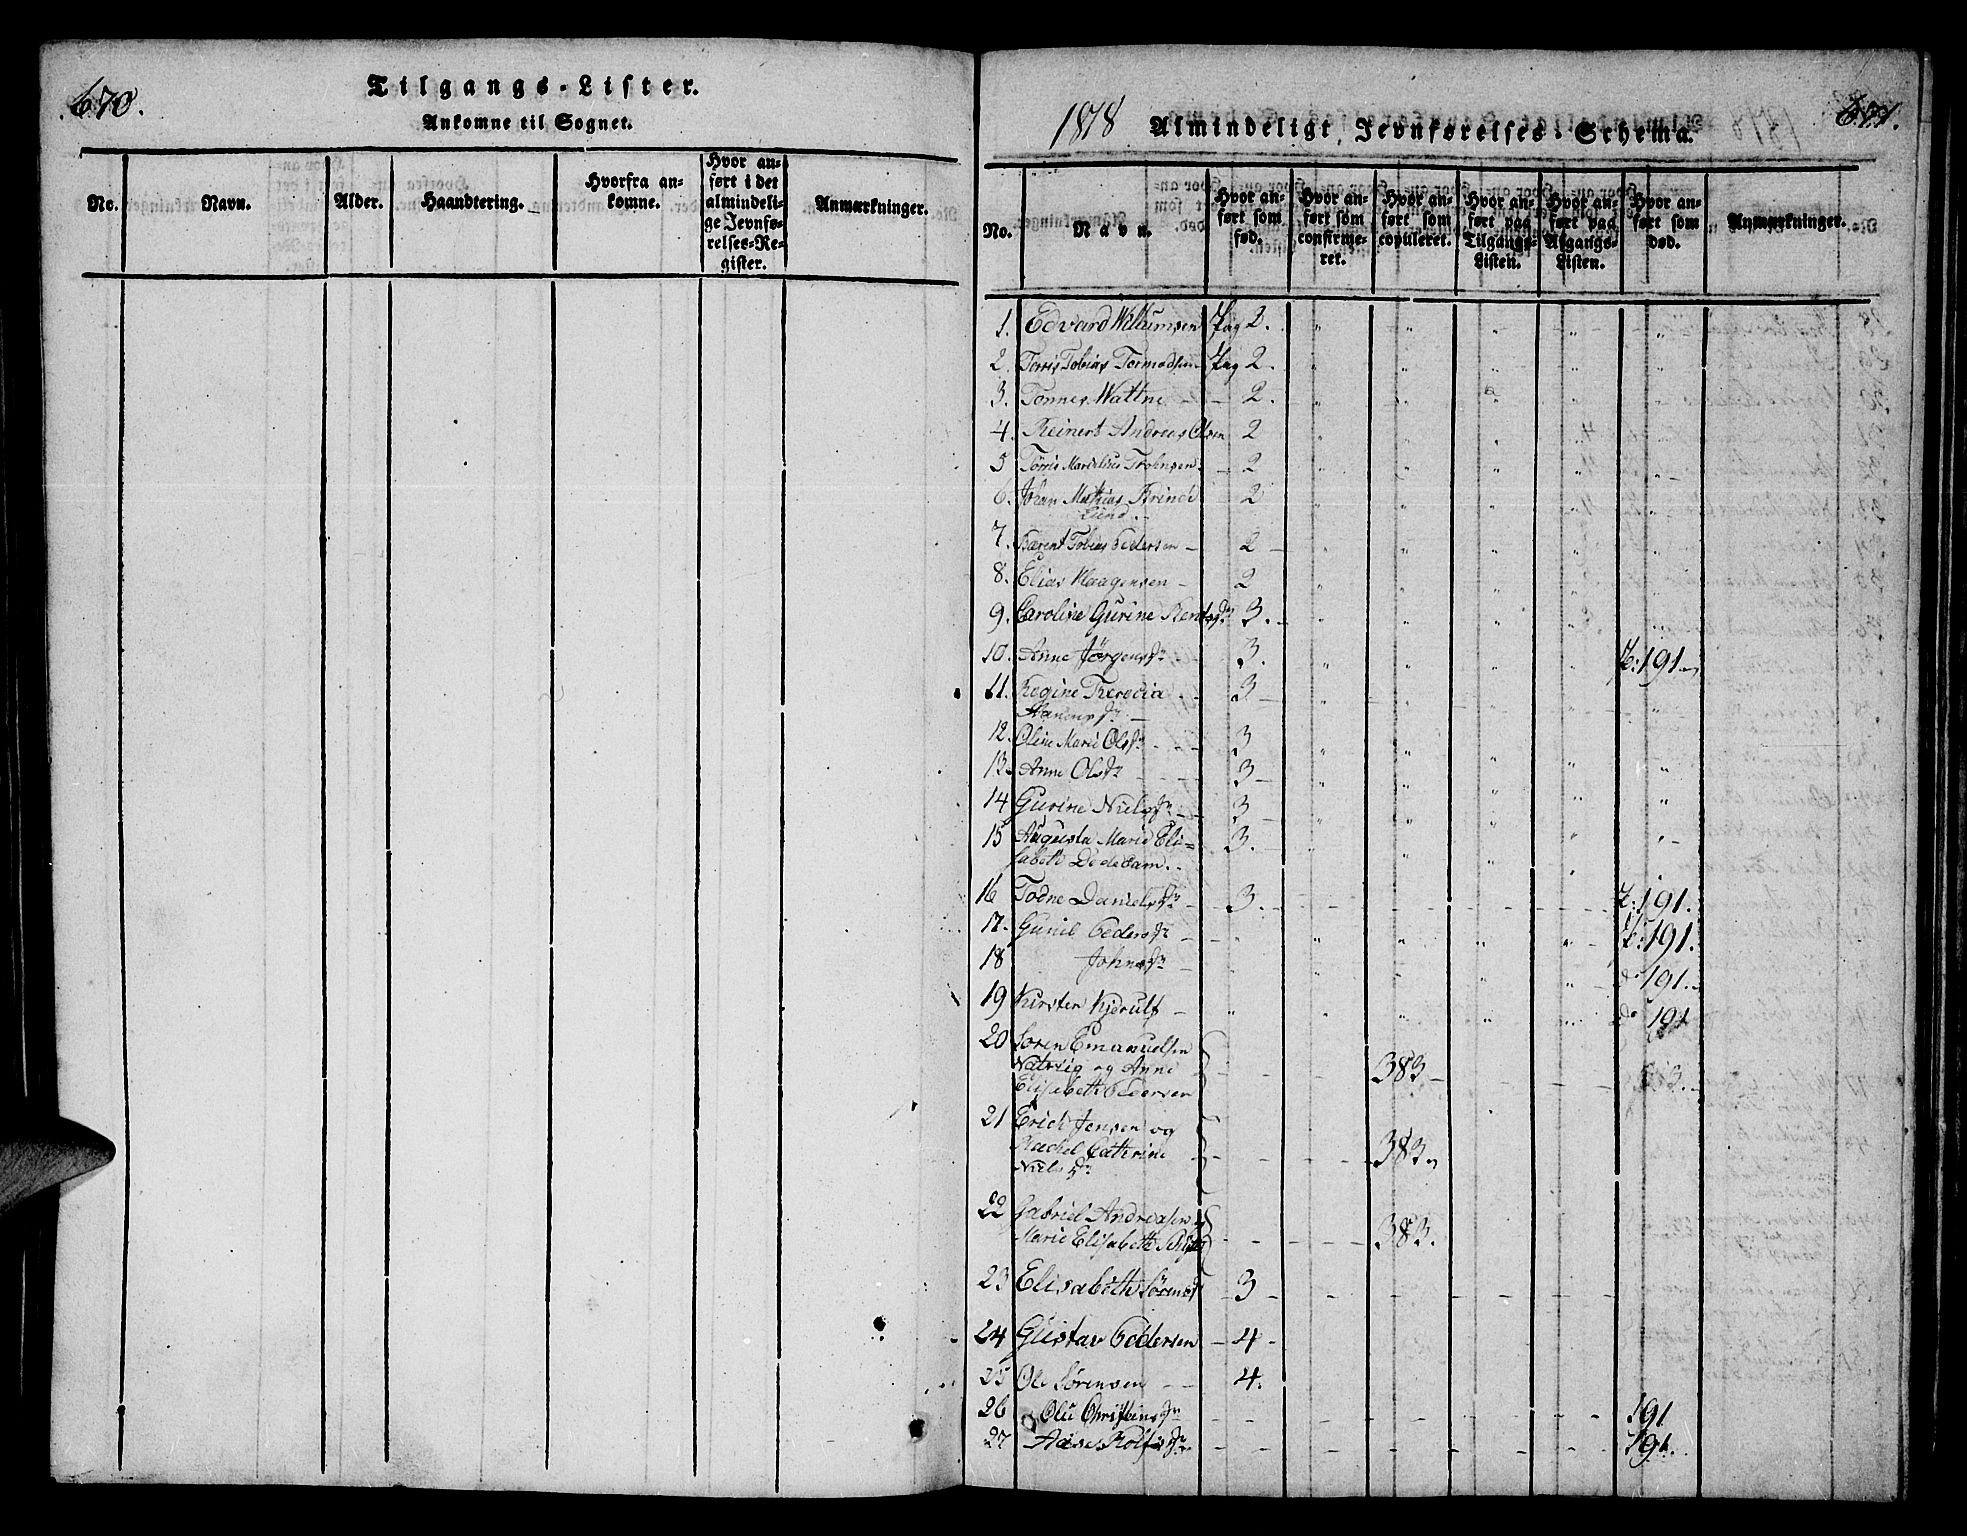 670.
Tilgangs-Lister.
Ankomne til Sognet.
No.
Navn.
Alder.
Haandtering.
Hvorfra an-
komne.
Hvor an-
ført i det
almindeli-
ge Jevnfø-
relses-Re-
gister.
Anmærkninger.
1818 Almindeligt Jevnførelses-Schema.
671.
No.
Navn.
Hvor an-
ført som
fød.
Hvor an-
ført som
confirme-
ret.
Hvor an-
ført som
copuleret.
Hvor an-
ført paa
Tilgangs-
Listen.
Hvor an-
ført paa
Afgangs-
Listen.
Hvor an-
ført som
død.
Anmærkninger.
1. Edvard Willumsen Pag 2.
2. Torris Tobias Tormodsen Pag 2.
3. Tonnes Wattne 2.
4. Reinert Andreas Olsen 2
5 Törris Trolmsen 2
6. Johan Mathias Brinch 2
Lund
7. Barent Tobias Pedersen 2
8. Elias Haagensen 2
9. Caroline Gurine 3.
10. Anne Jörgensdr 3. P: 191
11. Regine Terecia 3
Hansensdr
12. Oline Marie Olsdr 3
13. Anne Olsdr 3
14 Gurine Nielsdr 3
15 Augusta Marie Eli= 3.
sabeth Dedekam
16 Todne Danielsdr 3. P: 191.
17. Gunil Pedersdr P: 191.
18 Johnsdr do 191.
19 Kirsten Kjerulf do 191
20 Soren Emanuelsen
Natvig og Anne 383
Elisabeth Pedersen
21 Erich Jensen og
Rachel Cathrine 383
Nielsdr
22 Gabriel Andreasen
Marie Elisabeth 383.
23 Elisabeth Sörensdr 3
24 Gustav Pedersen 4
25 Ole Sörensen 4.
26 Olu Christensdr 191
27 Aase Rolfsdr 191.